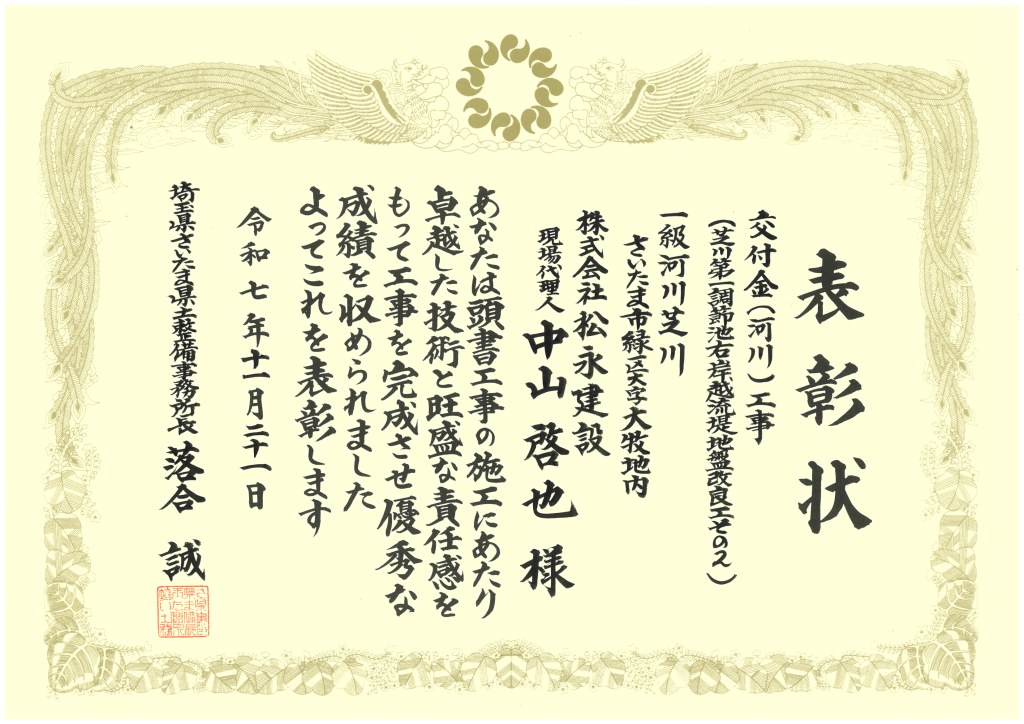 表彰状
交付金(河川)工事
(芝川第一調節池右岸越流堤地盤改良工その2)
一級河川芝川
さいたま市緑区大字大牧地内
株式会社松永建設
現場代理人 中山啓也 様
あなたは頭書工事の施工にあたり
卓越した技術と旺盛な責任感を
もって工事を完成させ優秀な
成績を収められました
よってこれを表彰します
令和七年十一月二十一日
埼玉県さいたま県土整備事務所長 落合 誠